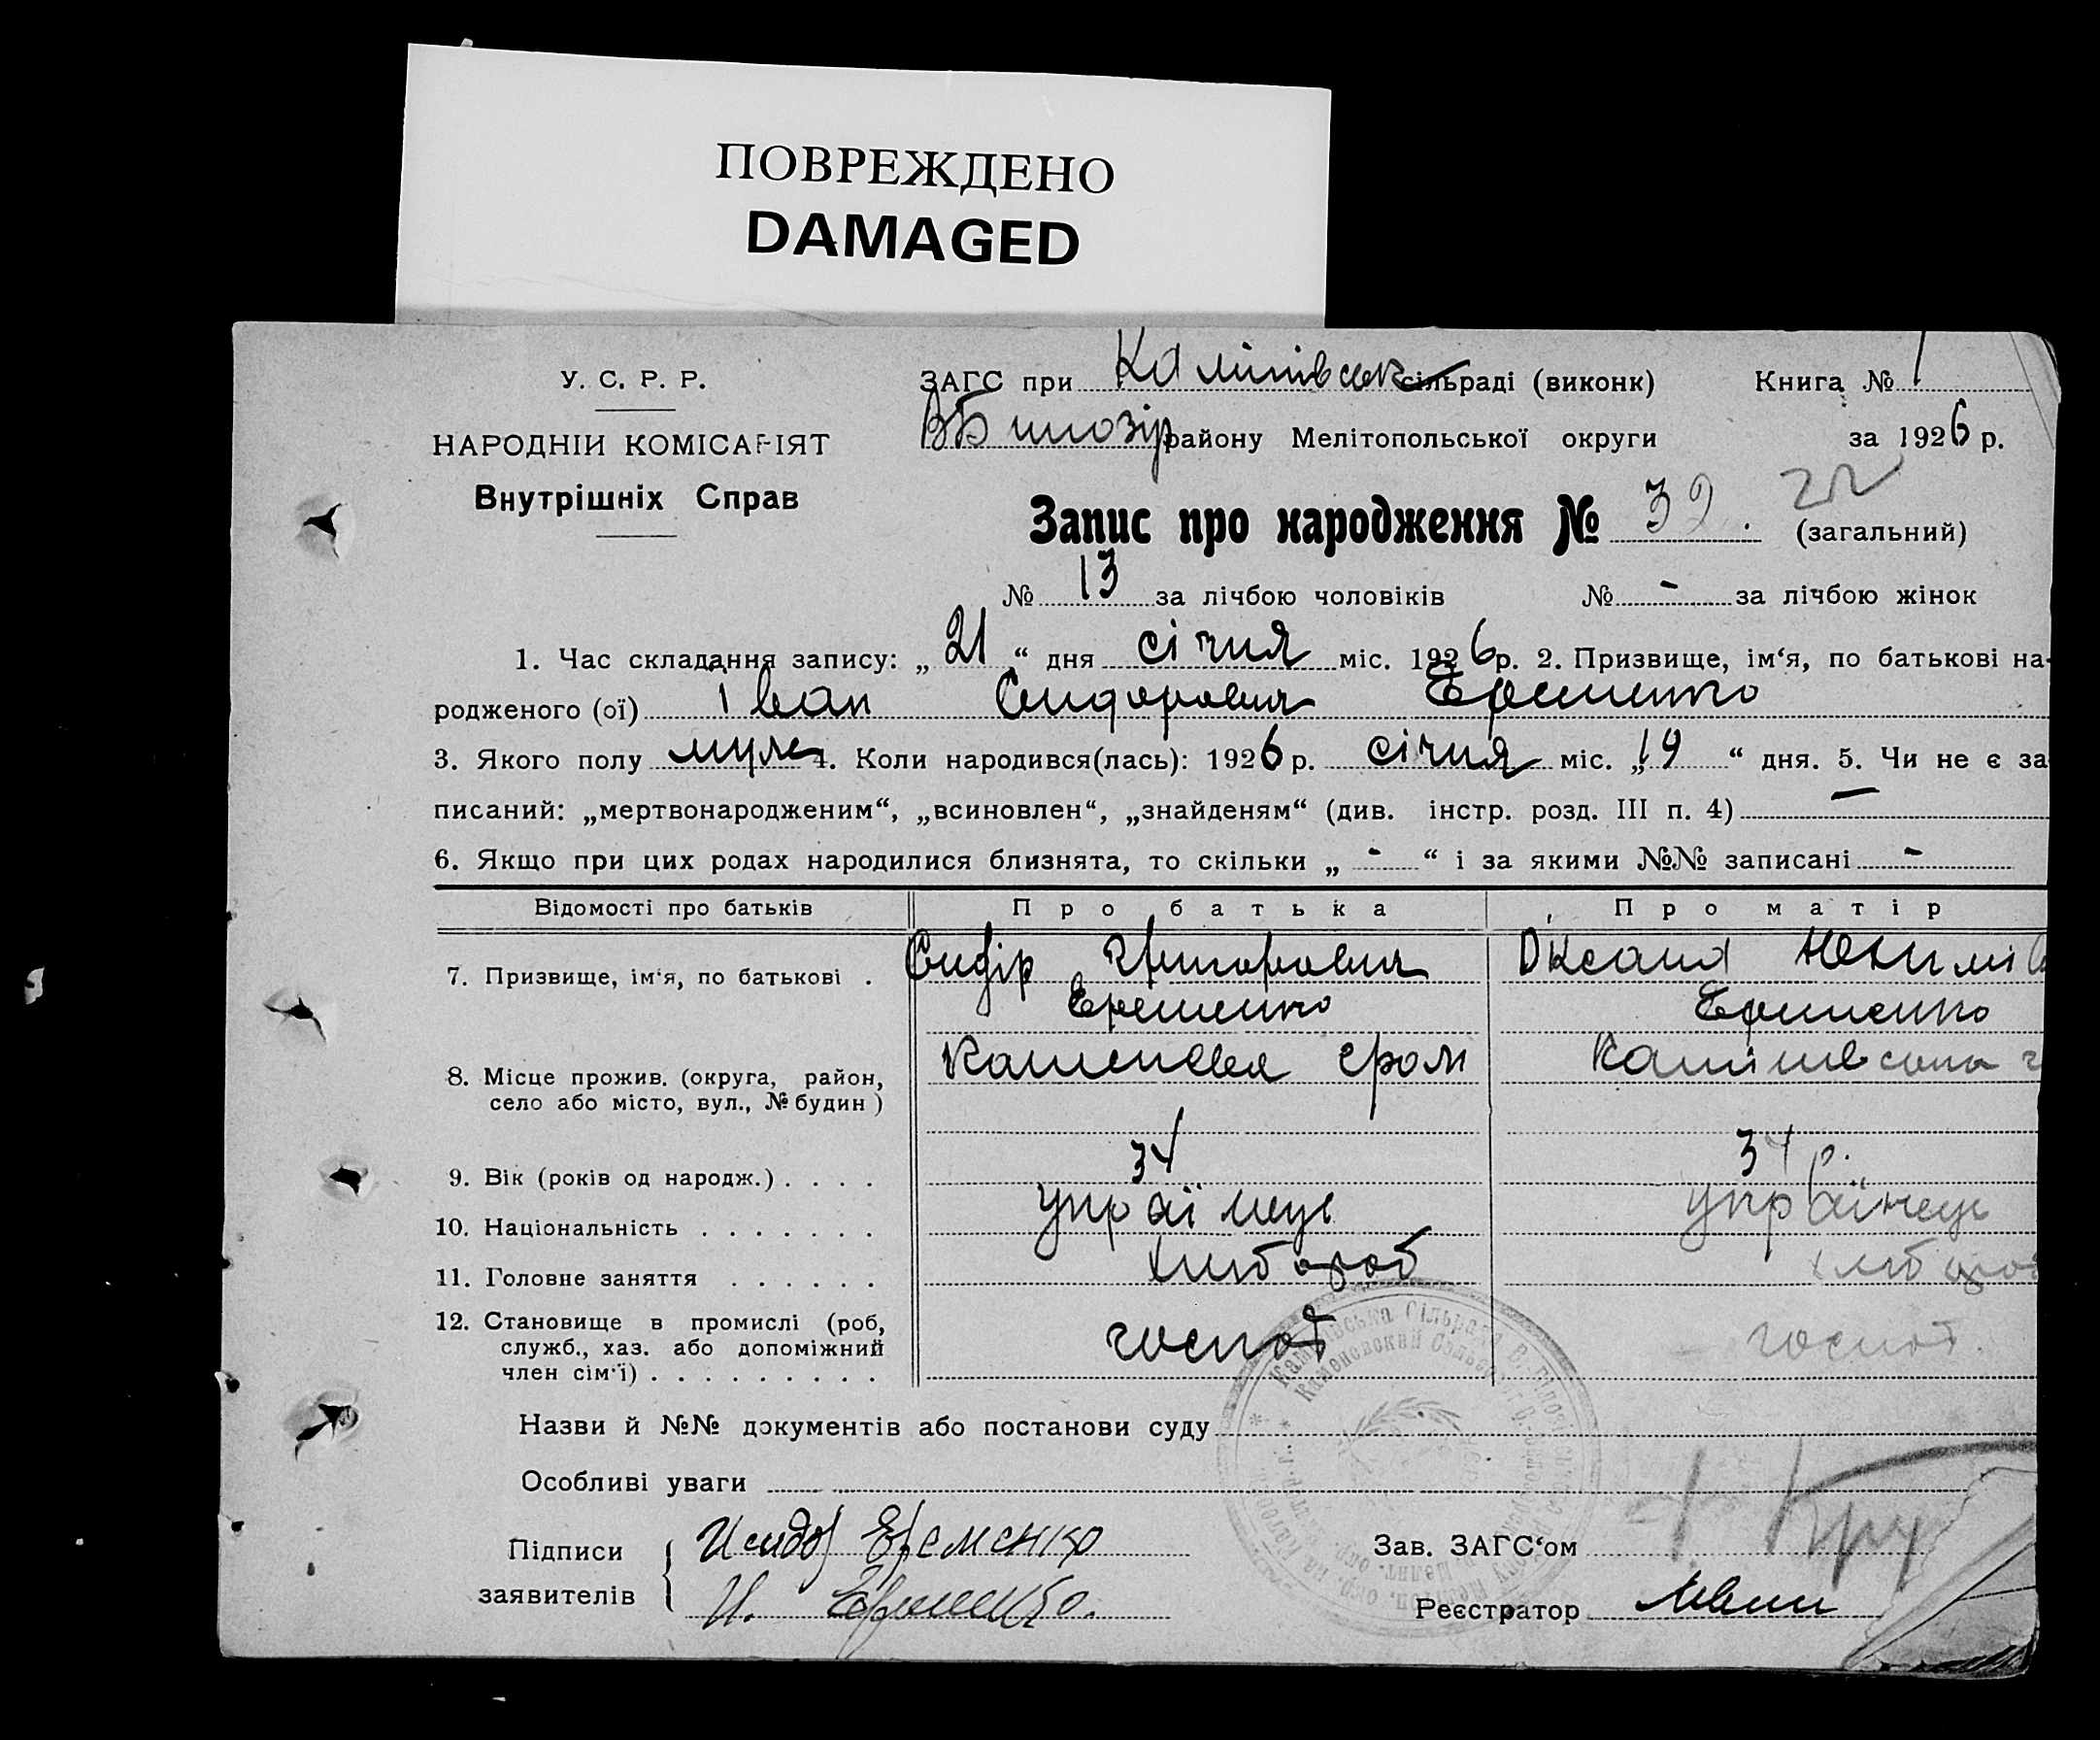 ПОВРЕЖДЕНО
DAMAGED
У. С. Р. Р.
НАРОДНІЙ КОМІСАРІЯТ
Внутрішніх Справ
ЗАГС при сільраді (виконк) Книга № 1
району Мелітопольської округи за 1926 р.
Запис про народження № 39. 22 (загальний)
№ 13 за лічбою чоловіків № - за лічбою жінок
1. Час складання запису: „ 21 “ дня січня міс. 1926 р. 2. Призвище, ім‘я, по батькові на-
родженого (ої) Іван Сидорович Ерешенко
3. Якого полу муж 4. Коли народився(лась): 1926 р. січня міс. „ 19 “ дня. 5. Чи не є за
писаний: „мертвонародженим“, „всиновлен“, „знайденям“ (див. інстр. розд. III п. 4) —
6. Якщо при цих родах народилися близнята, то скільки „ - “ і за якими №№ записані -
Відомості про батьків Про батька Про матір
7. Призвище, ім‘я, по батькові . Сидір Григорович Оксана
Еременко Еременко
8. Місце прожив. (округа, район,
село або місто, вул., № будин )
9. Вік (років од народж.) . . . . 34 34 р.
10. Національність . . . . . . . українець українець
11. Головне заняття . . . . . . хлібороб хлібороб
12. Становище в промислі (роб,
служб., хаз. або допоміжний
член сім‘ї) . . . . . . . . . господ господ.
Назви й №№ документів або постанови суду
Особливі уваги
Підписи заявителів Исидор Еременко
И. Еременко.
Зав. ЗАГС‘ом
Реєстратор